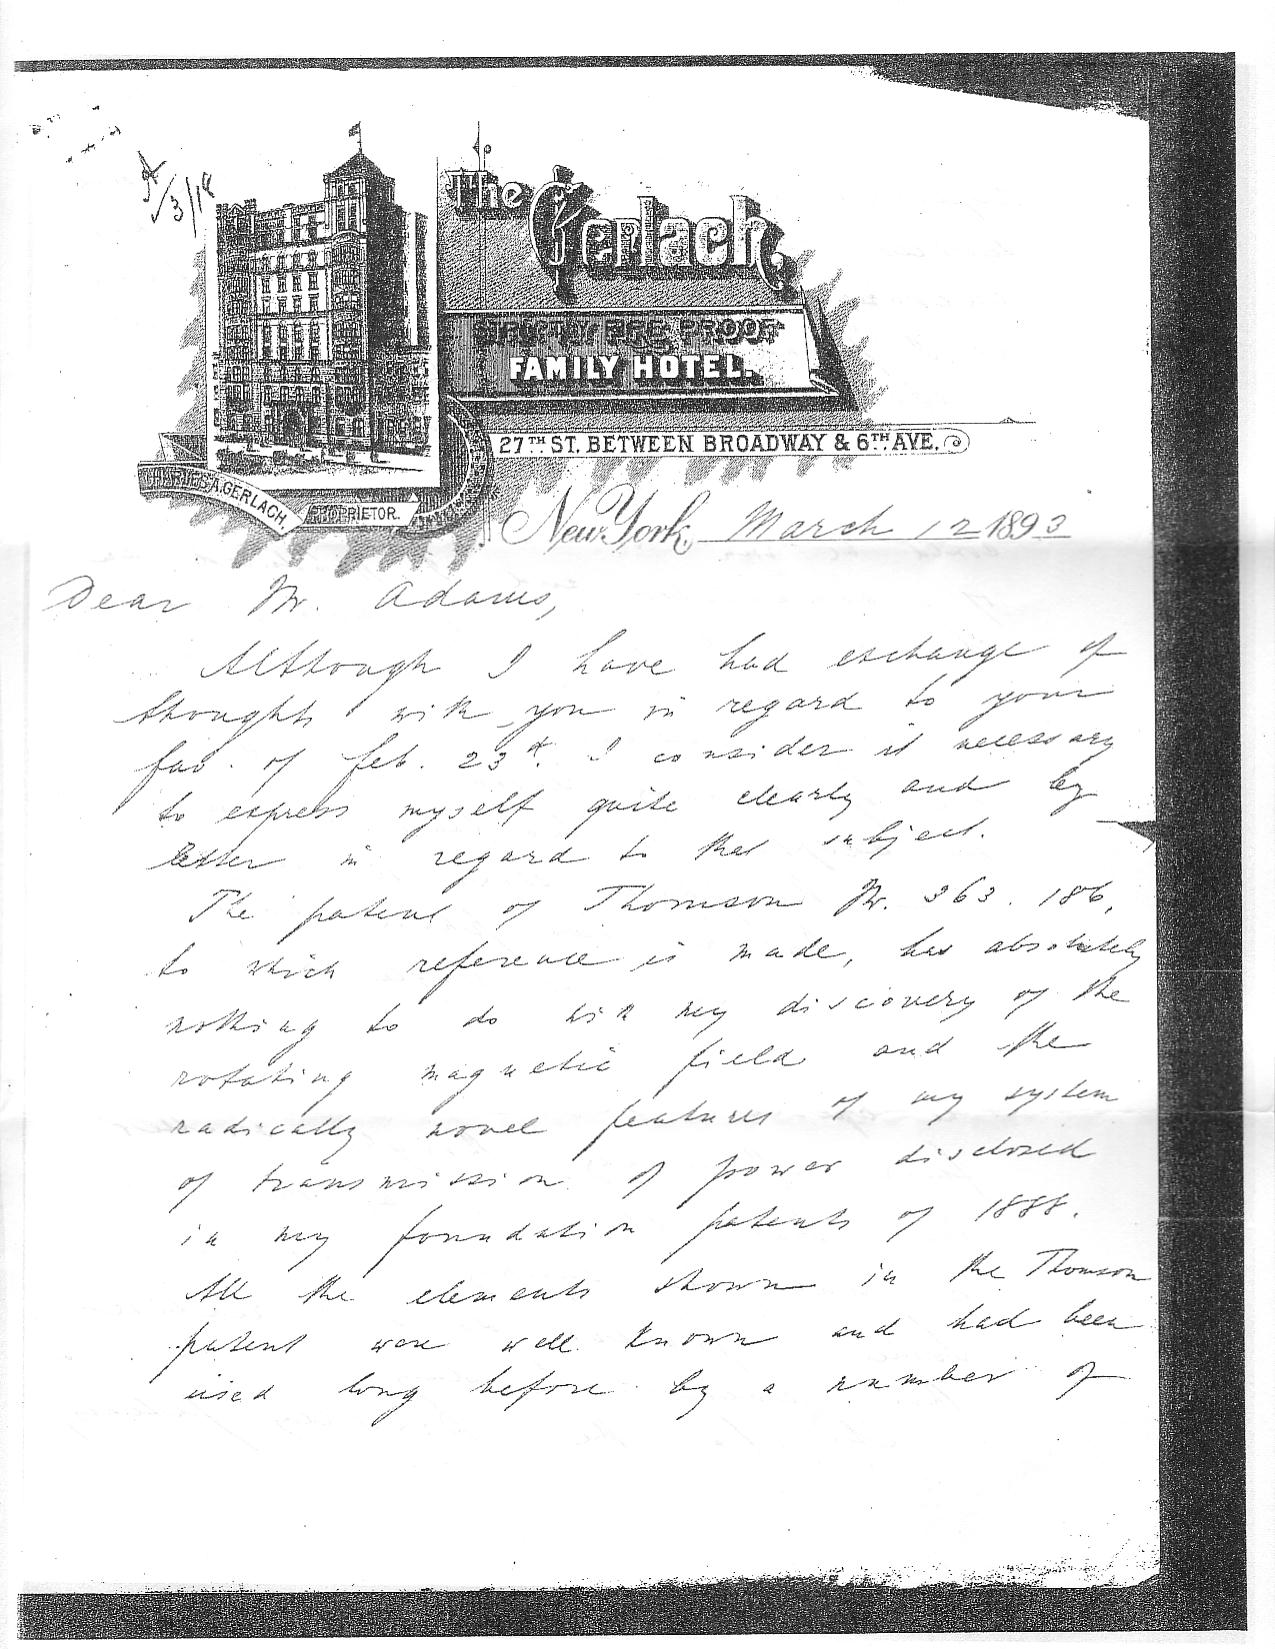 The Gerlach,
STRICTLY FIRE PROOF
FAMILY HOTEL.
27TH ST. BETWEEN BROADWAY & 6TH AVE.
CHARLES A. GERLACH,
PROPRIETOR.
New York, March 12 1893
Dear Mr. Adams,
Although I have had exchange of
thoughts with you in regard to your
fav. of Feb. 23d. I consider it necessary
to express myself quite clearly and by
letter in regard to that subject.
The patent of Thomson Nr. 363.186,
to which reference is made, has absolutely
nothing to do with my discovery of the
rotating magnetic field and the
radically novel features of my system
of transmission of power disclosed
in my foundation patents of 1888.
All the elements shown in the Thomson
patent were well known and had been
used long before by a number of